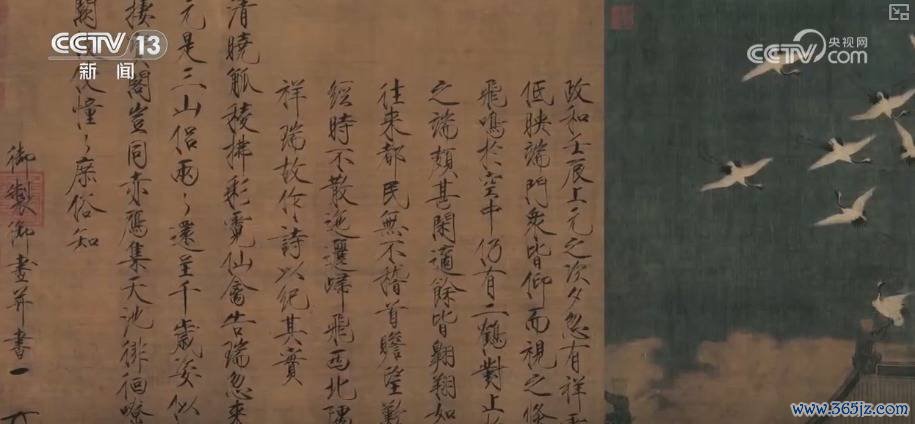 CCTV 13
新闻
CCTV 央视网
.com
政和壬辰上元之次夕忽有祥
低映端門眾皆仰而視之倏
飛鳴於空中仍有二鶴對上
之端頗甚閑適餘皆翱翔如
往來都民無不稽首瞻望歎
經時不散迤邐歸飛西北隅
祥瑞故作詩以紀其實
清曉觚稜拂彩霓仙禽告瑞忽來
元是三山侶兩〻還呈千歲姿似
棲閣豈同赤鴈集天池徘徊嘹
闕憧〻庶俗知
御製御畫并書
www.365jz.com